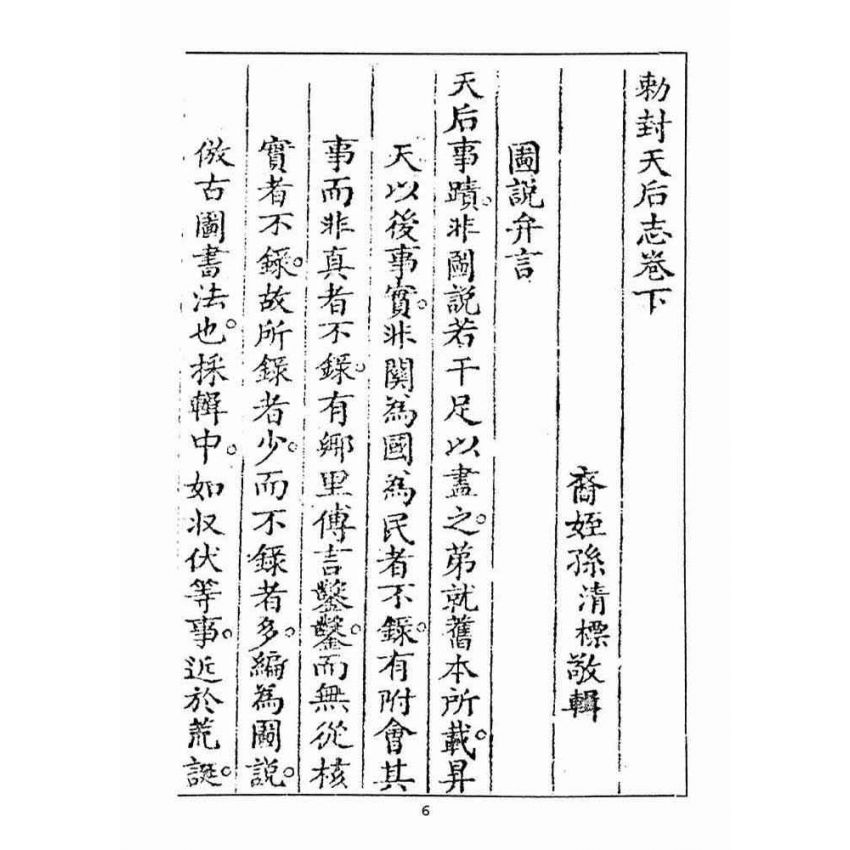 勅封天后志卷下
裔姪孫清標敬輯
圖說弁言
天后事蹟。非圖說若干足以盡之。苐就舊本所載。昇
天以後事實。非関為國為民者不錄。有附會其
事而非真者不錄。有鄉里傳言鑿鑿。而無從核
實者不錄。故所錄者少。而不錄者多。編為圖說。
倣古圖書法也。採輯中。如収伏等事。近於荒誕。
6